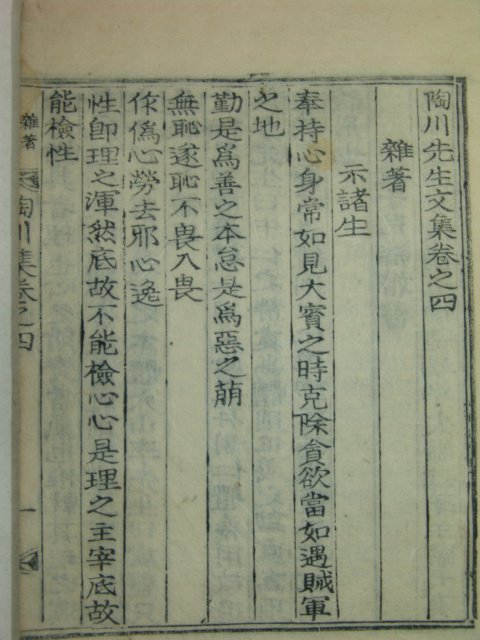 陶川先生文集卷之四
雜著
示諸生
奉持心身常如見大賓之時克除貪欲當如遇賊軍
之地
勤是爲善之本怠是爲惡之萠
無恥遂恥不畏入畏
作僞心勞去邪心逸
性卽理之渾然底故不能檢心心是理之主宰底故
能檢性
雜著
陶川集卷之四
一